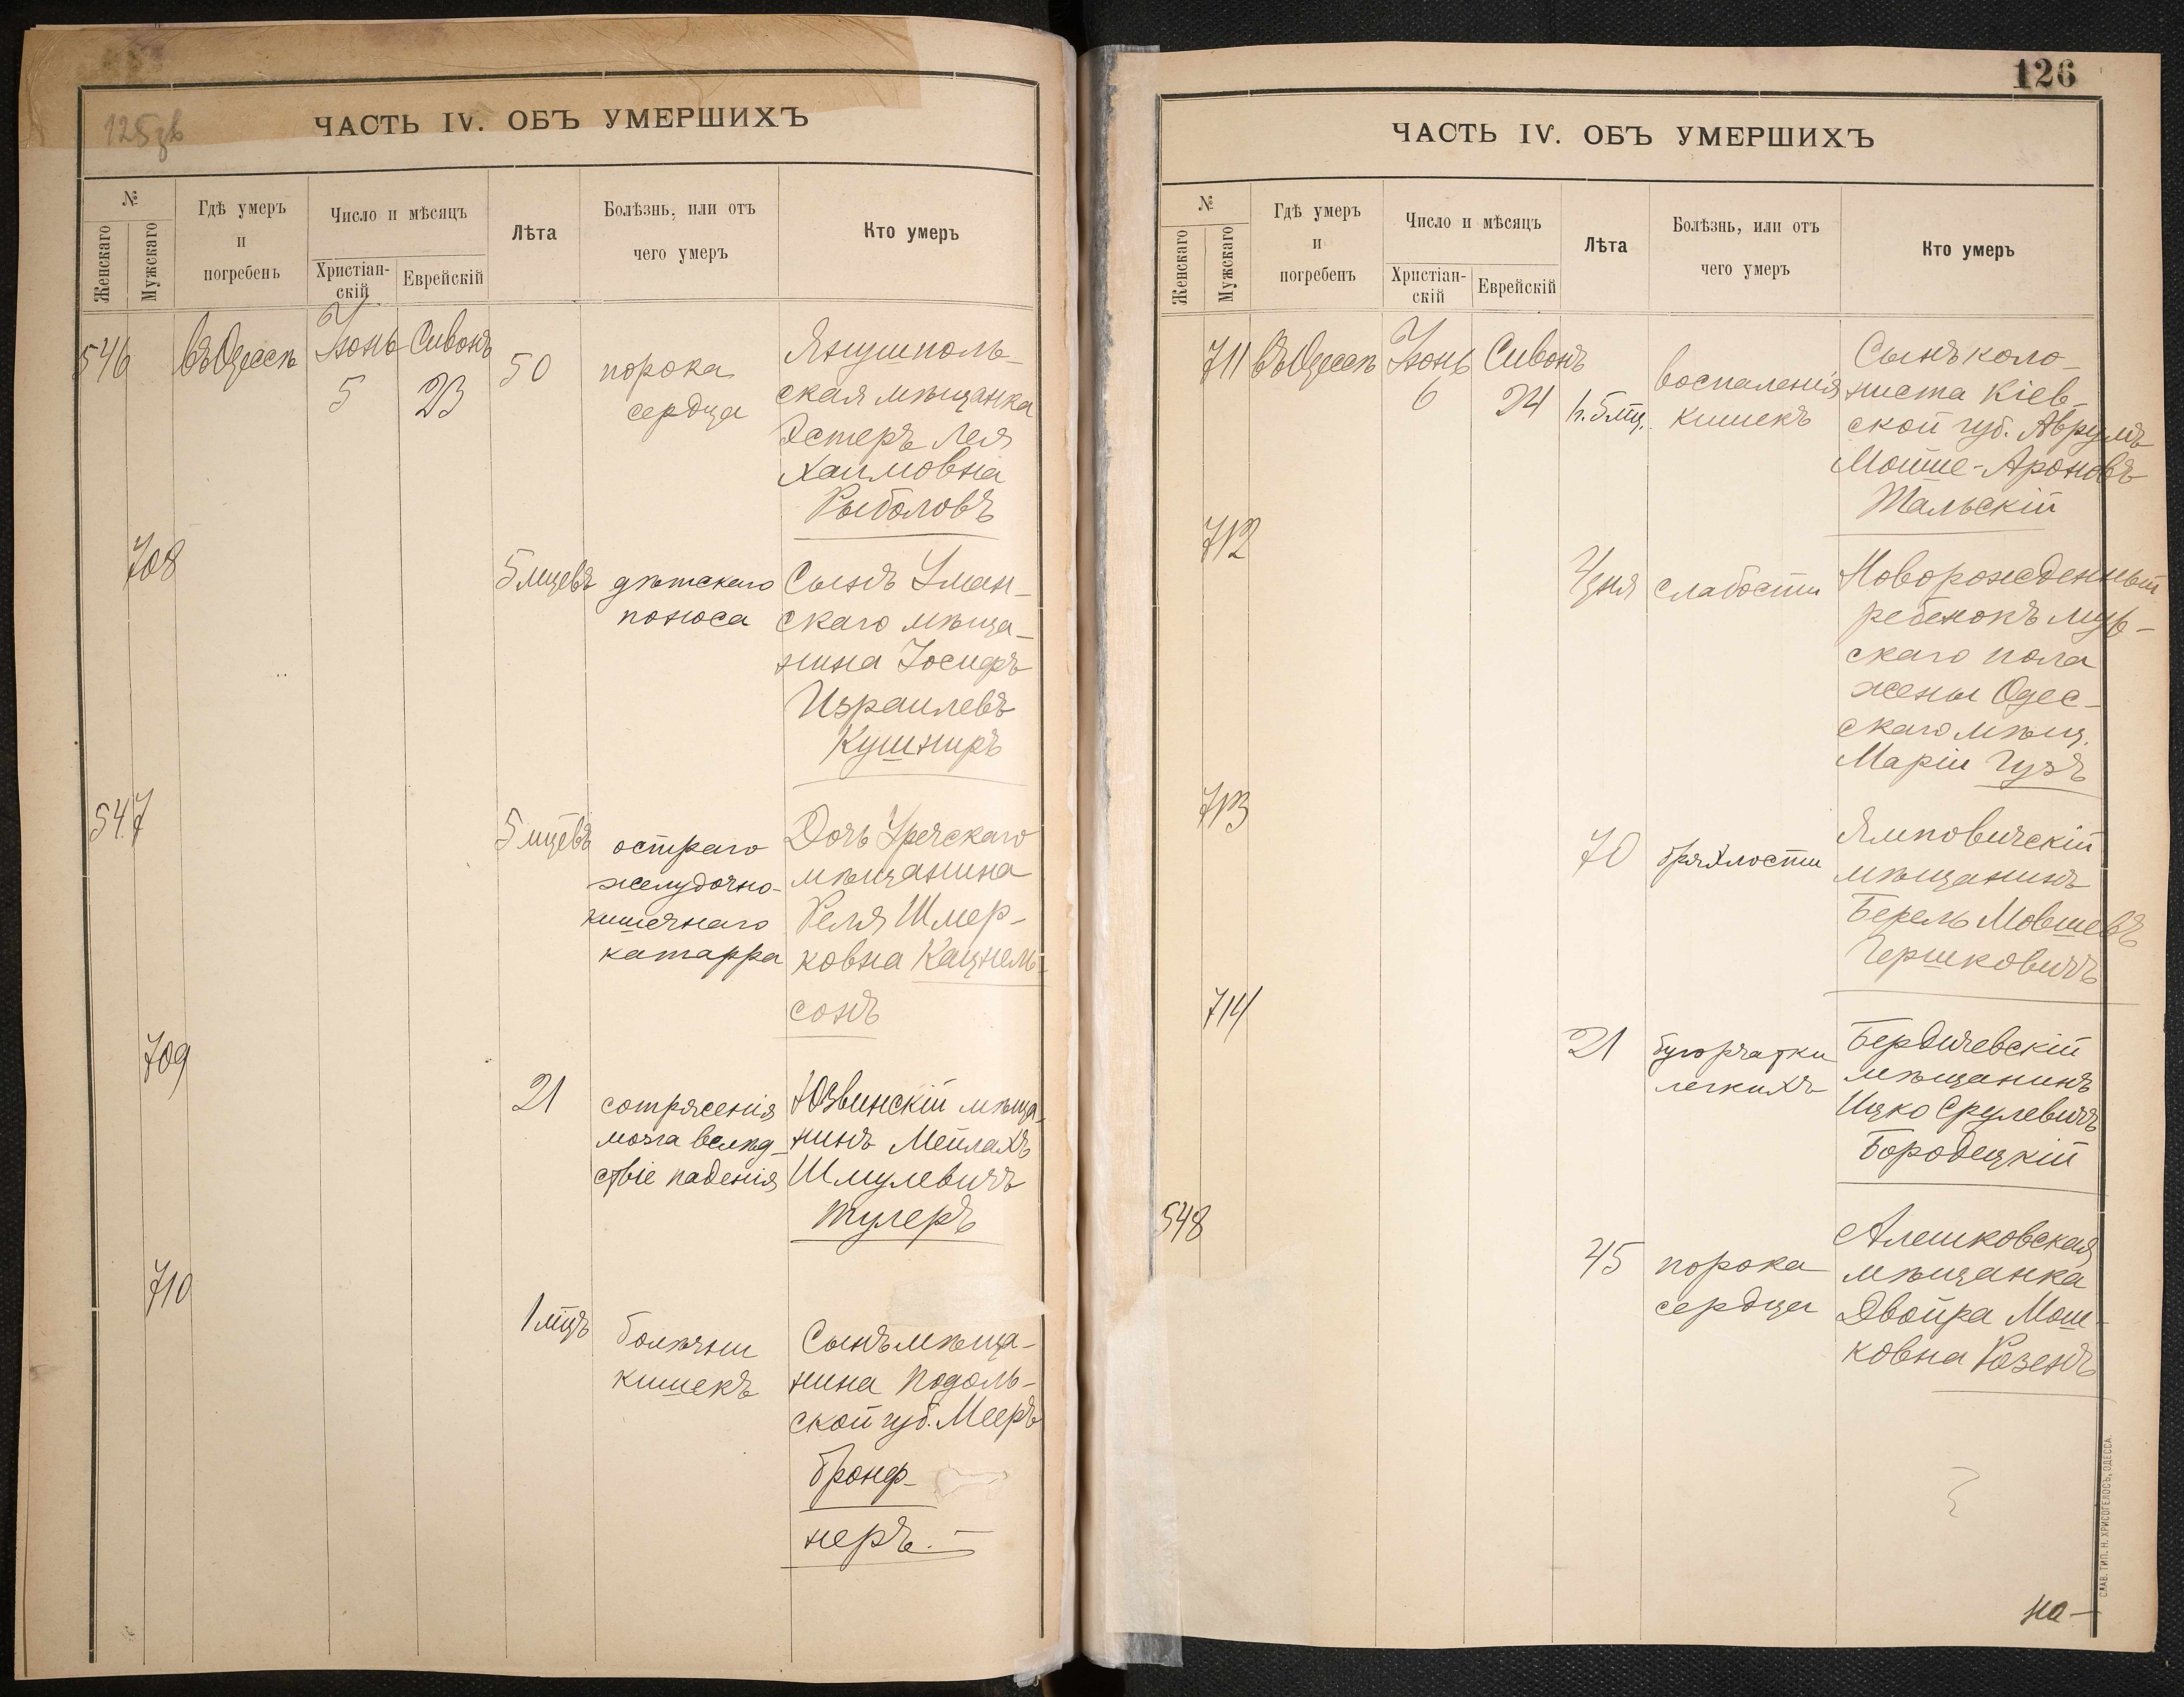 125 зв
ЧАСТЬ IV. ОБЪ УМЕРШИХЪ
№
Женскаго
Мужскаго
Гдѣ умеръ
и
погребенъ
Число и мѣсяцъ
Христіан-
скій
Еврейскій
Лѣта
Болѣзнь, или отъ
чего умеръ
Кто умеръ
546
въ Одессѣ
Іюнь
5
Сивонъ
23
50
порока
сердца
Янушполь-
ская мѣщанка
Эстеръ Лея
Хаимовна
Рыболовъ
708
5 мцевъ
дѣтскаго
поноса
Сынъ Уман-
скаго мѣща-
нина Іосифъ
Израилевъ
Кушниръ
547
5 мцевъ
остраго
желудочно-
кишечнаго
катарра
Дочь Уречскаго
мѣщанина
Реля Шмер-
ковна Кацнель-
сонъ
709
21
сотрясенія
мозга вслѣд-
ствіе паденія
Юзвинскій мѣща-
нинъ Мейлахъ
Шмулевичъ
Тулеръ
710
1 мцъ
болѣзни
кишекъ
Сынъ мѣща-
нина Подоль-
ской губ. Мееръ
Бронф-
неръ.—
126
ЧАСТЬ IV. ОБЪ УМЕРШИХЪ
№
Женскаго
Мужскаго
Гдѣ умеръ
и
погребенъ
Число и мѣсяцъ
Христіан-
скій
Еврейскій
Лѣта
Болѣзнь, или отъ
чего умеръ
Кто умеръ
711
въ Одессѣ
Іюнь
6
Сивонъ
24
1 г. 5 мц.
воспаленія
кишекъ
Сынъ коло-
ниста Кіев-
ской губ. Аврумъ
Мойше-Ароновъ
Тальскій
712
4 дня
слабости
Новорожденный
ребенокъ муж-
скаго пола
жены Одес-
скаго мѣщ.
Маріи Гузъ
713
70
дряхлости
Ямповичскій
мѣщанинъ
Берель Мовшевъ
Гершковичъ
714
21
бугорчатки
легкихъ
Бердичевскій
мѣщанинъ
Ицко Срулевичъ
Бородецкій
548
45
порока
сердца
Алешковская
мѣщанка
Двойра Мош-
ковна Розенъ
на—
СЛАВ. ТИП. Н. ХРИСОГЕЛОСЪ, ОДЕССА.